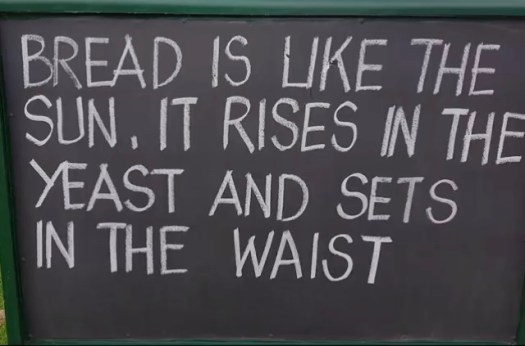 BREAD IS LIKE THE
SUN. IT RISES IN THE
YEAST AND SETS
IN THE WAIST